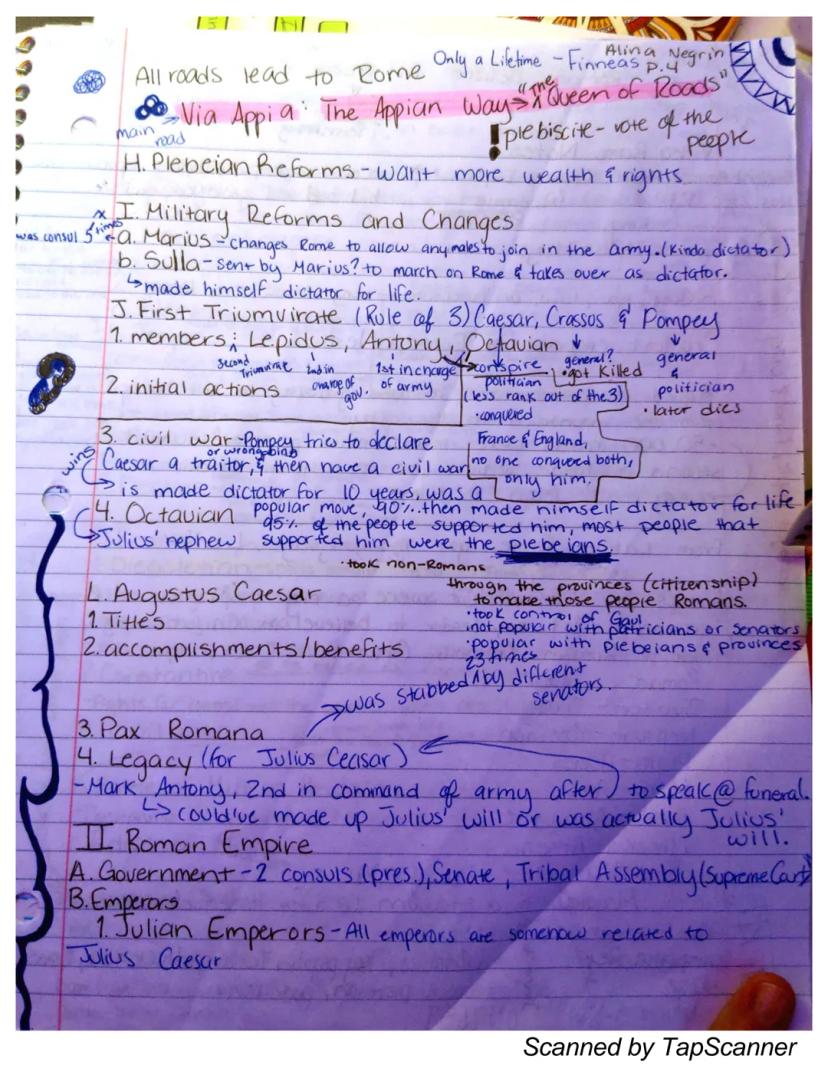 All roads lead to Rome
Only a Lifetime - Finneas
Alina Negrin
P.4
Via Appia: The Appian Way → "The Queen of Roads"
main road
! plebiscite - vote of the people
H. Plebeian Reforms - want more wealth & rights
I. Military Reforms and Changes
was consul 5x times
a. Marius - changes Rome to allow any males to join in the army. (Kinda dictator)
b. Sulla - sent by Marius? to march on Rome & takes over as dictator.
↳ made himself dictator for life.
J. First Triumvirate (Rule of 3) Caesar, Crassos & Pompey
1. members; Lepidus, Antony, Octavian
second Triumvirate
2nd in charge of gov.
1st in charge of army
2. initial actions
conspire
politician
(less rank out of the 3)
• conquered
France & England,
no one conquered both,
only him.
general?
• got killed
general
&
politician
• later dies
3. civil war - Pompey tries to declare
Caesar a traitor, & then have a civil war
wins
↳ is made dictator for 10 years, was a
popular move, 90%. then made himself dictator for life
4. Octavian
95% of the people supported him, most people that
Julius' nephew
supported him were the plebeians.
• took non-Romans
through the provinces (citizenship)
to make those people Romans.
L. Augustus Caesar
1. Title's
• took control of Gaul
not popular with patricians or senators
2. accomplishments/benefits
• popular with plebeians & provinces
23 times
→ was stabbed ^ by different
senators.
3. Pax Romana
4. Legacy (for Julius Ceasar)
- Mark Antony, 2nd in command of army after) to speak @ funeral.
↳ could've made up Julius' will or was actually Julius'
will.
II Roman Empire
A. Government - 2 consuls (pres.), Senate, Tribal Assembly (Supreme Cart)
B. Emperors
1. Julian Emperors - All emperors are somehow related to
Julius Caesar
Scanned by TapScanner